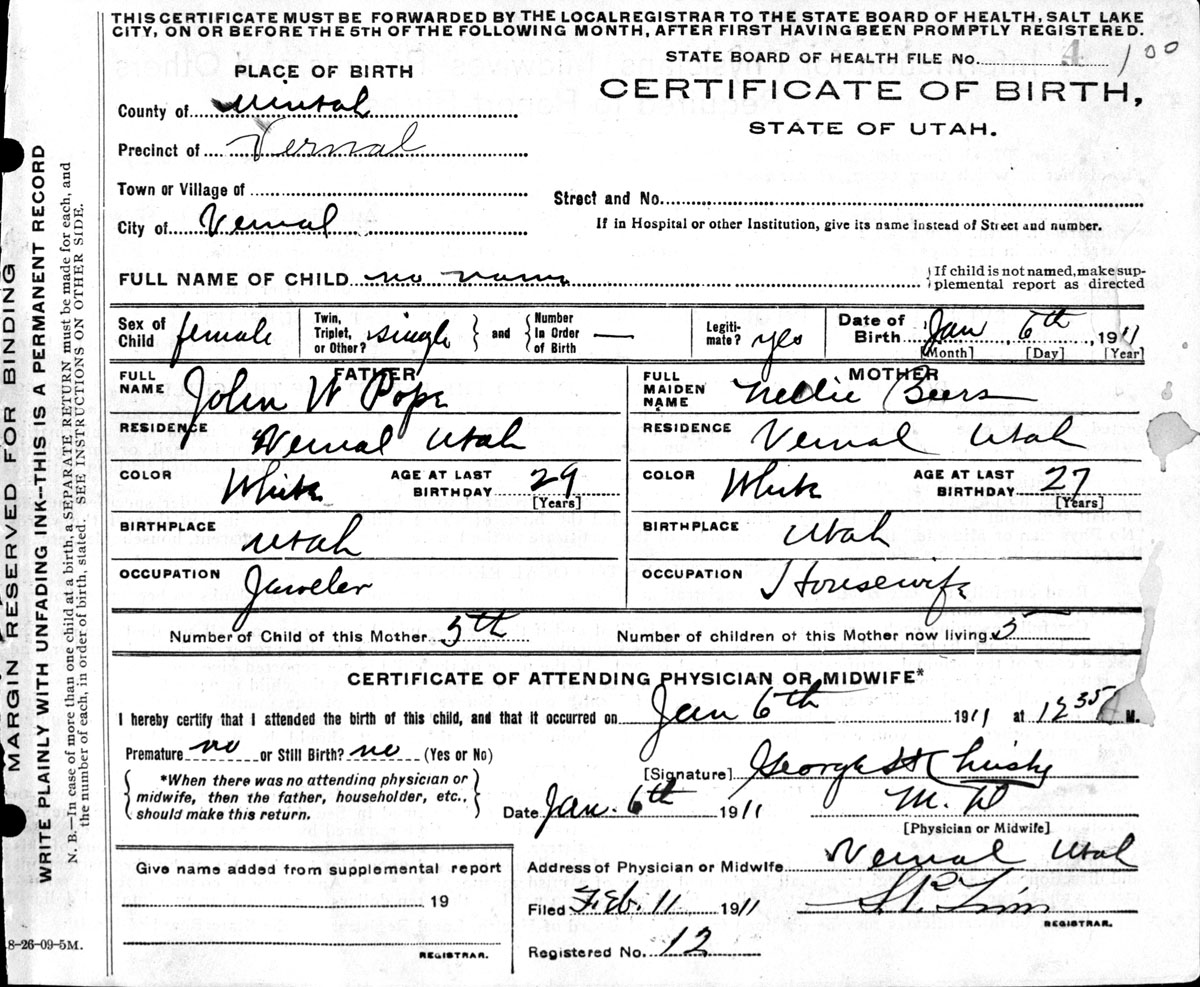 THIS CERTIFICATE MUST BE FORWARDED BY THE LOCAL REGISTRAR TO THE STATE BOARD OF HEALTH, SALT LAKE
CITY, ON OR BEFORE THE 5TH OF THE FOLLOWING MONTH, AFTER FIRST HAVING BEEN PROMPTLY REGISTERED.
STATE BOARD OF HEALTH FILE No. 4 100
CERTIFICATE OF BIRTH,
STATE OF UTAH.
PLACE OF BIRTH
County of Uintah
Precinct of Vernal
Town or Village of
City of Vernal
Street and No.
If in Hospital or other Institution, give its name instead of Street and number.
FULL NAME OF CHILD no name
If child is not named, make sup-
plemental report as directed
Sex of Child female
Twin, Triplet, or Other? single and Number In Order of Birth —
Legiti-mate? yes
Date of Birth Jan 6th 1911
[Month] [Day] [Year]
FATHER
FULL NAME John W Pope
RESIDENCE Vernal Utah
COLOR White AGE AT LAST BIRTHDAY 29
[Years]
BIRTHPLACE Utah
OCCUPATION Jeweler
MOTHER
FULL MAIDEN NAME Nellie Beers
RESIDENCE Vernal Utah
COLOR White AGE AT LAST BIRTHDAY 27
[Years]
BIRTHPLACE Utah
OCCUPATION Housewife
Number of Child of this Mother 5th Number of children of this Mother now living 5
CERTIFICATE OF ATTENDING PHYSICIAN OR MIDWIFE*
I hereby certify that I attended the birth of this child, and that it occurred on Jan 6th 1911 at 12 35 M.
Premature no or Still Birth? no (Yes or No)
*When there was no attending physician or
midwife, then the father, householder, etc.,
should make this return.
[Signature] George H Christy
Date Jan. 6th 1911 M.D
[Physician or Midwife]
Give name added from supplemental report
19
REGISTRAR.
Address of Physician or Midwife Vernal Utah
Filed Feb. 11 1911
REGISTRAR.
Registered No. 12
MARGIN RESERVED FOR BINDING
WRITE PLAINLY WITH UNFADING INK--THIS IS A PERMANENT RECORD
N. B.—In case of more than one child at a birth, a SEPARATE RETURN must be made for each, and
the number of each, in order of birth, stated. SEE INSTRUCTIONS ON OTHER SIDE.
8-26-09-5M.